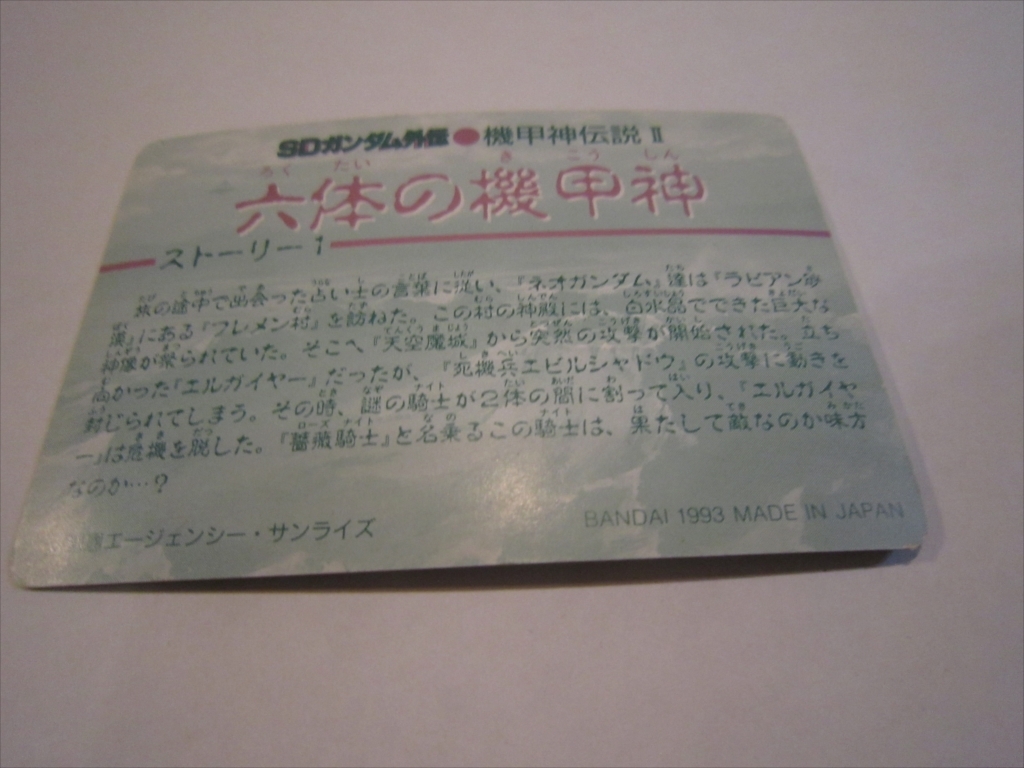 SDガンダム外伝●機甲神伝説 II
ろくたい きこうしん
六体の機甲神
ストーリー1
旅の途中で出会った占い士の言葉に従い、『ネオガンダム』達は『ラビアン海
漠』にある『フレメン村』を訪ねた。この村の神殿には、白水晶でできた巨大な
神像が祭られていた。そこへ『天空魔城』から突然の攻撃が開始された。立ち
向かった『エルガイヤー』だったが、『死機兵エビルシャドウ』の攻撃に動きを
封じられてしまう。その時、謎の騎士が2体の間に割って入り、『エルガイヤ
ー』は危機を脱した。『薔薇騎士』と名乗るこの騎士は、果たして敵なのか味方
なのか…?
エージェンシー・サンライズ
BANDAI 1993 MADE IN JAPAN